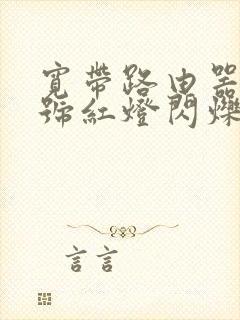 寬帶路由器
號紅燈閃爍
言言